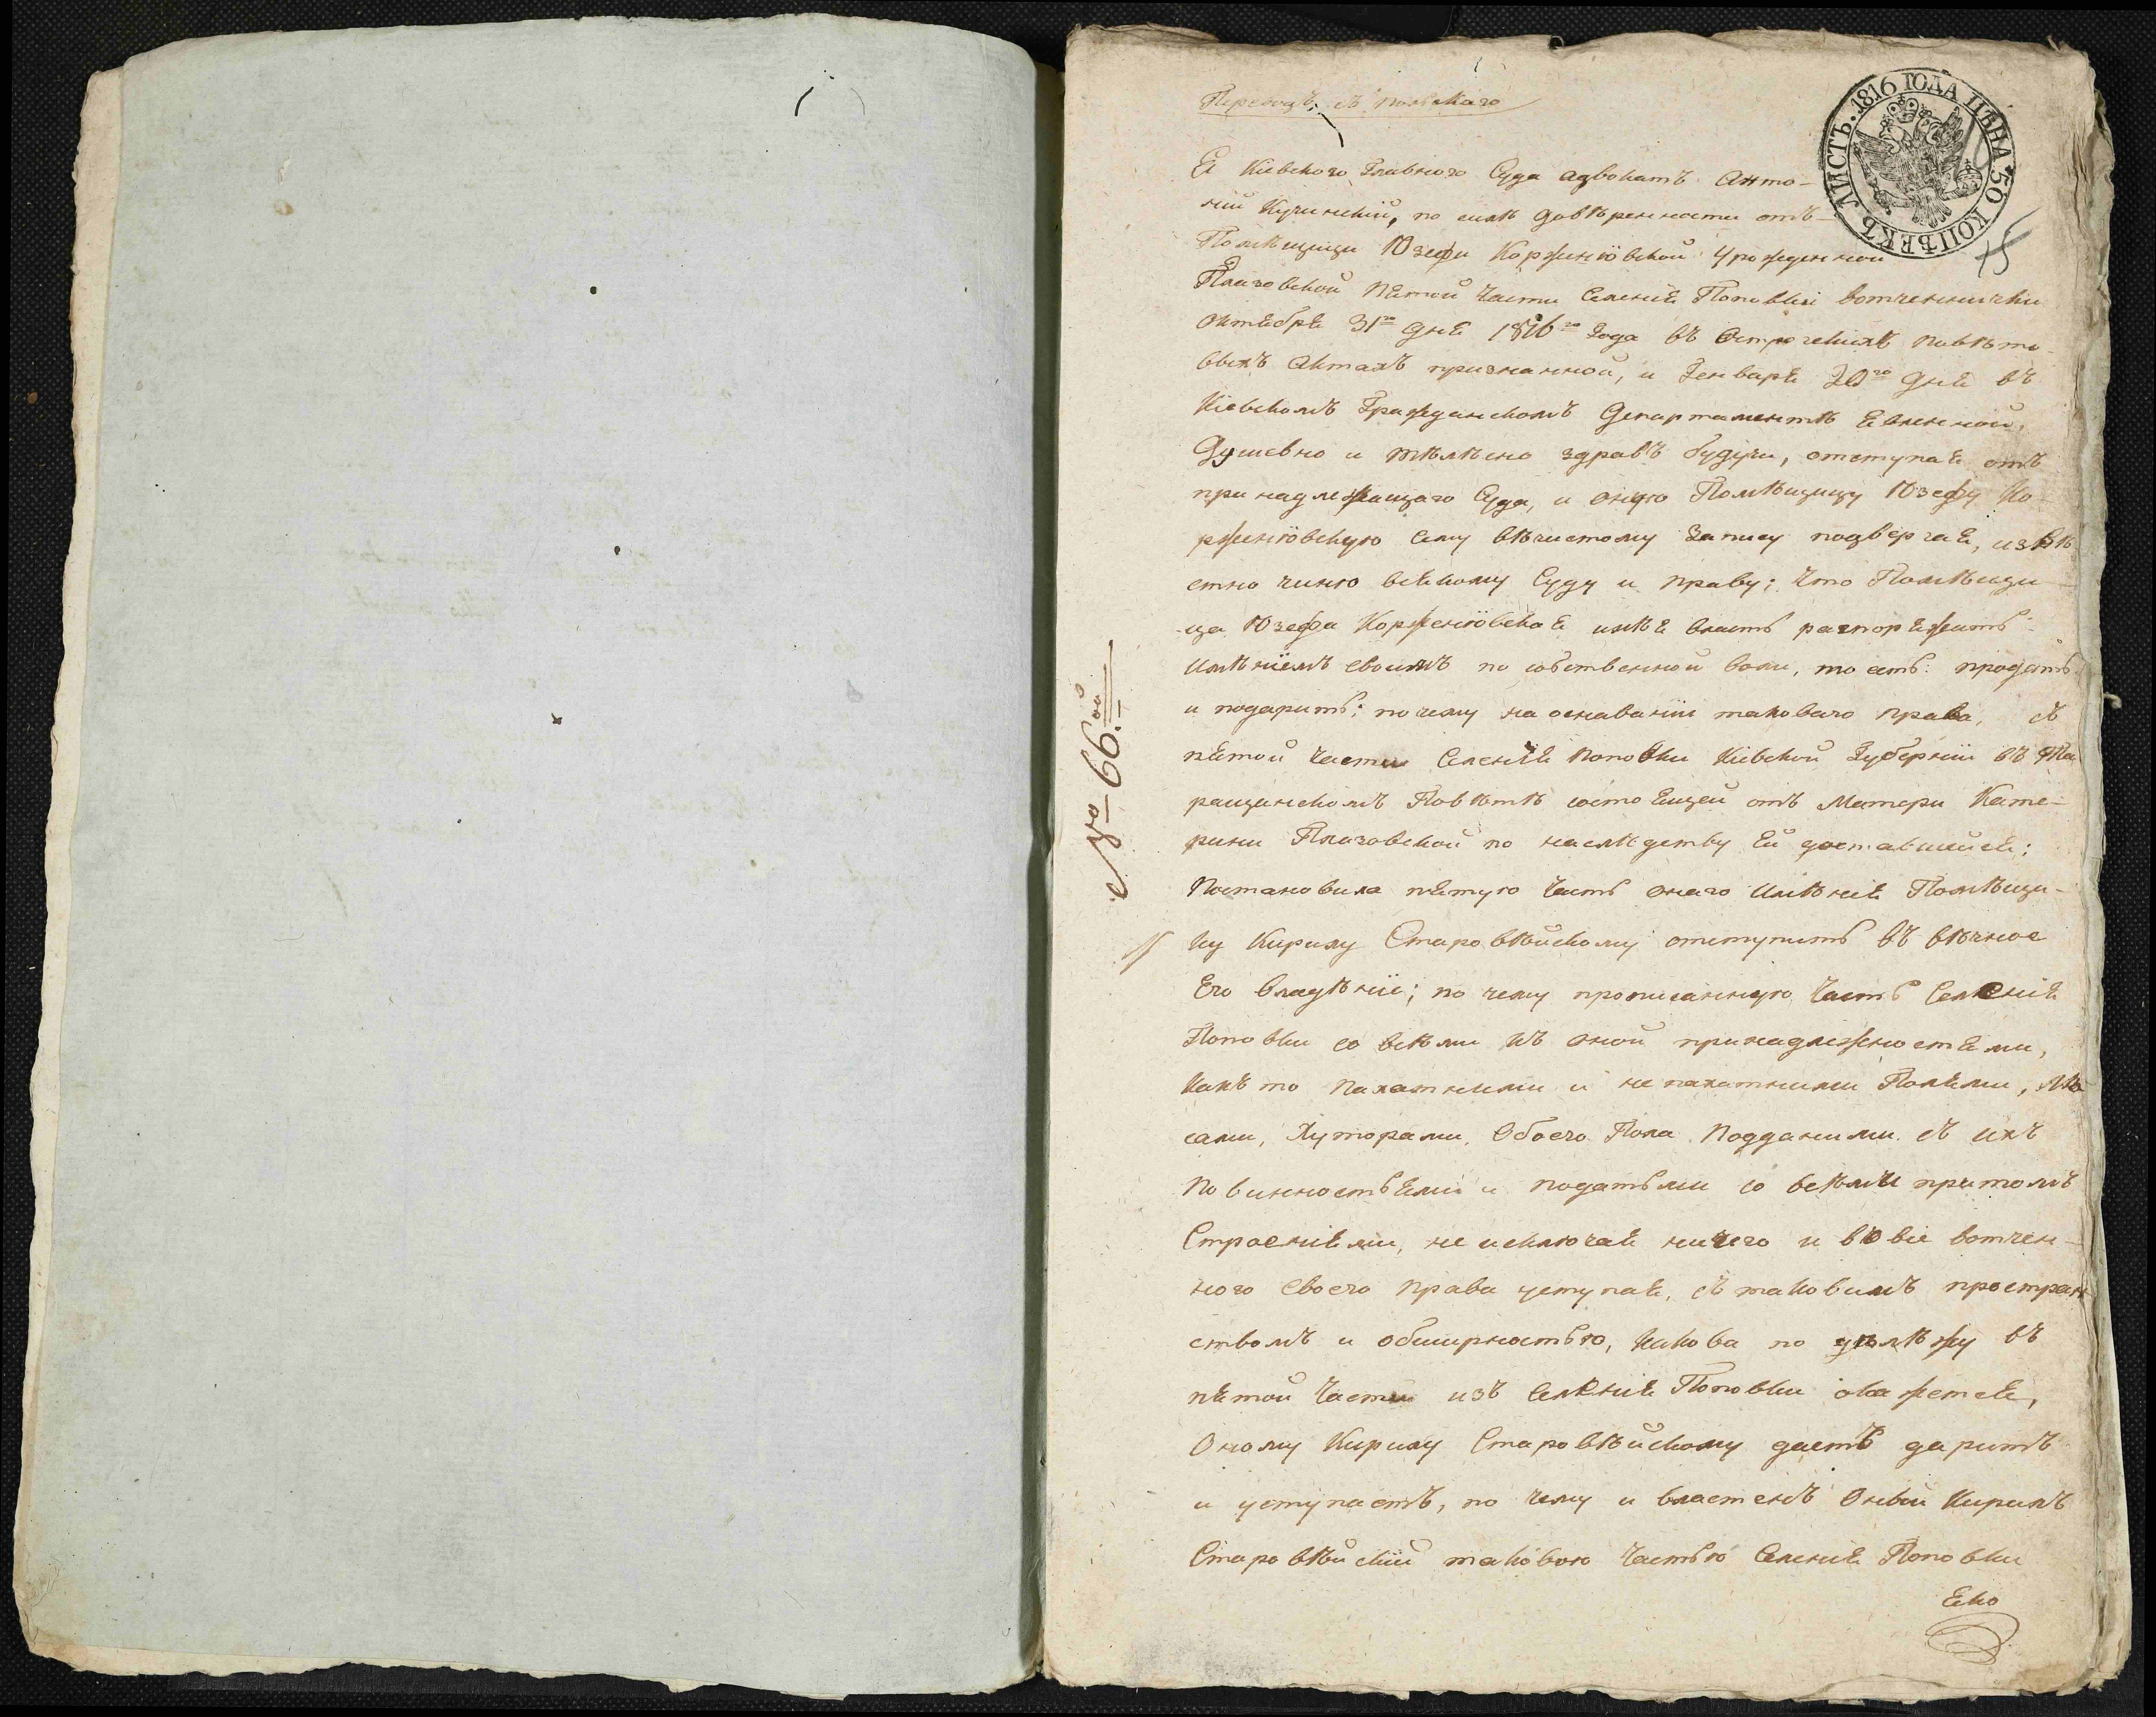 Переводъ съ польскаго
ЛИСТЪ. 1816 ГОДА ЦѢНА 50 КОПѢЕКЪ
Я Кіевского Главного Суда адвокатъ Анто-
ній Кучинскій, по силѣ довѣренности отъ
Помѣщици Юзефи Корженіовской урожденной
Плазовской пятой части Селенія Поповки вотченнички
Октября 31го дня 1816го года въ повѣто-
выхъ Актахъ признанной, и Генваря 20го дня въ
Кіевскомъ Гражданскомъ Департаментѣ явленной,
Душевно и тѣлѣсно здравъ будучи, отступая отъ
принадлежащаго Суда, и оную Помѣщицу Юзефу Ко-
рженіовскую сему вѣчистому Запису подвергая, извѣ
стно чиню всякому Суду и праву; что Помѣщи-
ца Юзефа Корженіовская имѣя власть распоряжать
имѣніемъ своимъ по собственной воли, то есть: продать
и подарить; почему на основаніи таковаго права, съ
пятой части Селенія Поповки Кіевской Губерніи въ Та
ращанскомъ Повѣтѣ состоящей отъ Матери Кате-
рини Плазовской по наслѣдству ей доставшейся;
Постановила пятую часть онаго имѣнія Помѣщи-
ку Кирилу Старовѣйскому отступить въ вѣчное
Его владѣніе; по чему прописанную часть Селенія
Поповки со всѣми къ оной принадлежностями,
какъ то пахатними и не пахатними Полями, лѣ
сами, хуторами, обоего Пола Подданими съ ихъ
повинностьями и податьми со всѣми притомъ
Строеніями, не исключая ничего и вовіе вотчен-
ного своего права уступая, съ таковимъ простран
ствомъ и обширностью, какова по въ
пятой части изъ Селенія Поповки окажется,
Оному Кирилу Старовѣйскому даетъ даритъ
и уступаетъ, по чему и властенъ Оный Кирилъ
Старовѣйскій таковою частью Селенія Поповки
Яко
№ 66.ой